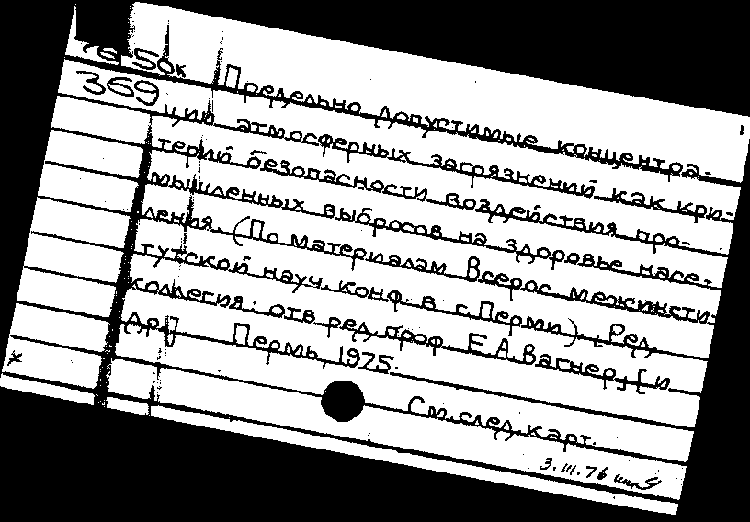 76-50к
369
Предельно допустимые концентра-
ции атмосферных загрязнений как кри-
терий безопасности воздействия про-
мышленных выбросов на здоровье насе-
ления. (По материалам Всерос. межинсти-
тутской науч. конф. в г. Перми). [Ред.
коллегия: отв. ред. проф. Е.А. Вагнер] [и
др.]
Пермь, 1975.
См. след. карт.
3.III.76